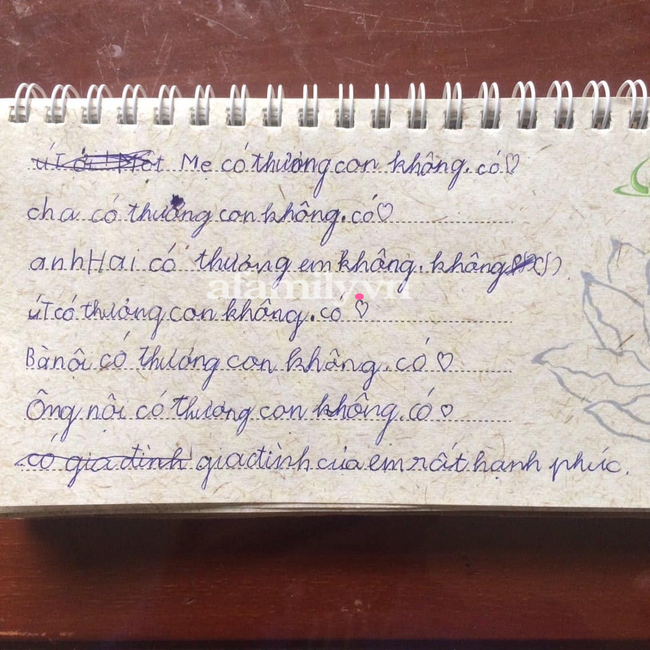 Mẹ có thương con không. có♡
cha có thương con không. có♡
anh Hai có thương em không. không
út có thương con không. có ♡
Bà nội có thương con không. có♡
Ông nội có thương con không. có♡
có gia đình gia đình của em rất hạnh phúc.
afamily.vn